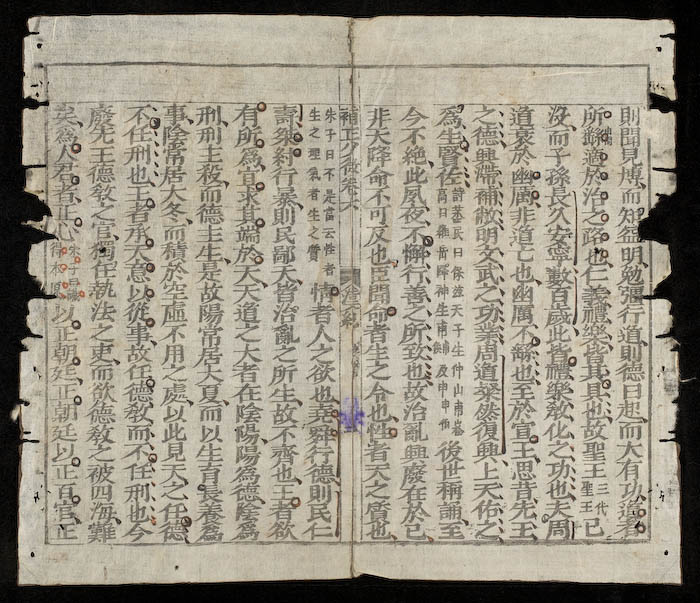 則聞見博而知益明勉彊行道則德日起而大有功道者
所繇適於治之路也仁義禮樂皆其具也故聖王三代聖王已
沒而子孫長久安寧數百歲此皆禮樂敎化之功也夫周
道衰於幽厲非道亡也幽厲不繇也至於宣王思昔先王
之德興滯補敝明文武之功業周道粲然復興上天佑之
爲生賢佐詩蒸民曰保玆天子生仲山甫崧高曰維岳降神生甫及申後世稱誦至
今不絶此夙夜不懈行善之所致也故治亂興廢在於已
非天降命不可反也臣聞命者生之令也性者天之質也
補正少微卷六
朱子曰不是當云性者生之理氣者生之質情者人之欲也堯舜行德則民仁
壽桀紂行暴則民鄙夭皆治亂之所生故不齊也王者欲
有所爲宜求其端於天天道之大者在陰陽陽爲德陰爲
刑刑主殺而德主生是故陽常居大夏而以生育長養爲
事陰常居大冬而積於空虛不用之處以此見天之任德
不任刑也王者承天意以從事故任德敎而不任刑也今
廢先王德敎之官獨任執法之吏而欲德敎之被四海難
矣爲人君者正心以正朝廷正朝廷以正百官正